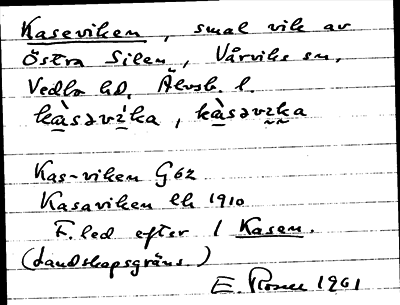 Kaseviken, smal vik av
Östra Silen, Vårviks sn,
Vedbo hd, Älvsb. l.
kàsəvika, kàsəvika
Kas-viken G62
Kasaviken Ek 1910
F. led efter 1 Kasen.
(Landskapsgräns)
E. Rosell 1961